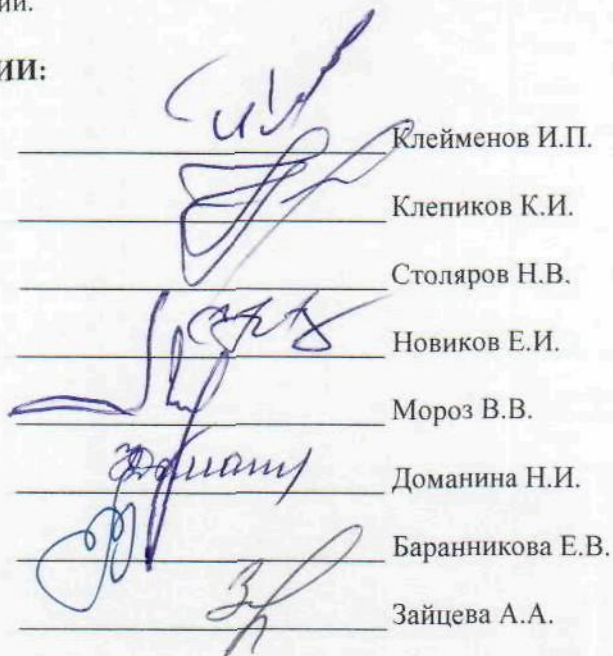 ии.
ИИ:
Клейменов И.П.
Клепиков К.И.
Столяров Н.В.
Новиков Е.И.
Мороз В.В.
Доманина Н.И.
Баранникова Е.В.
Зайцева А.А.